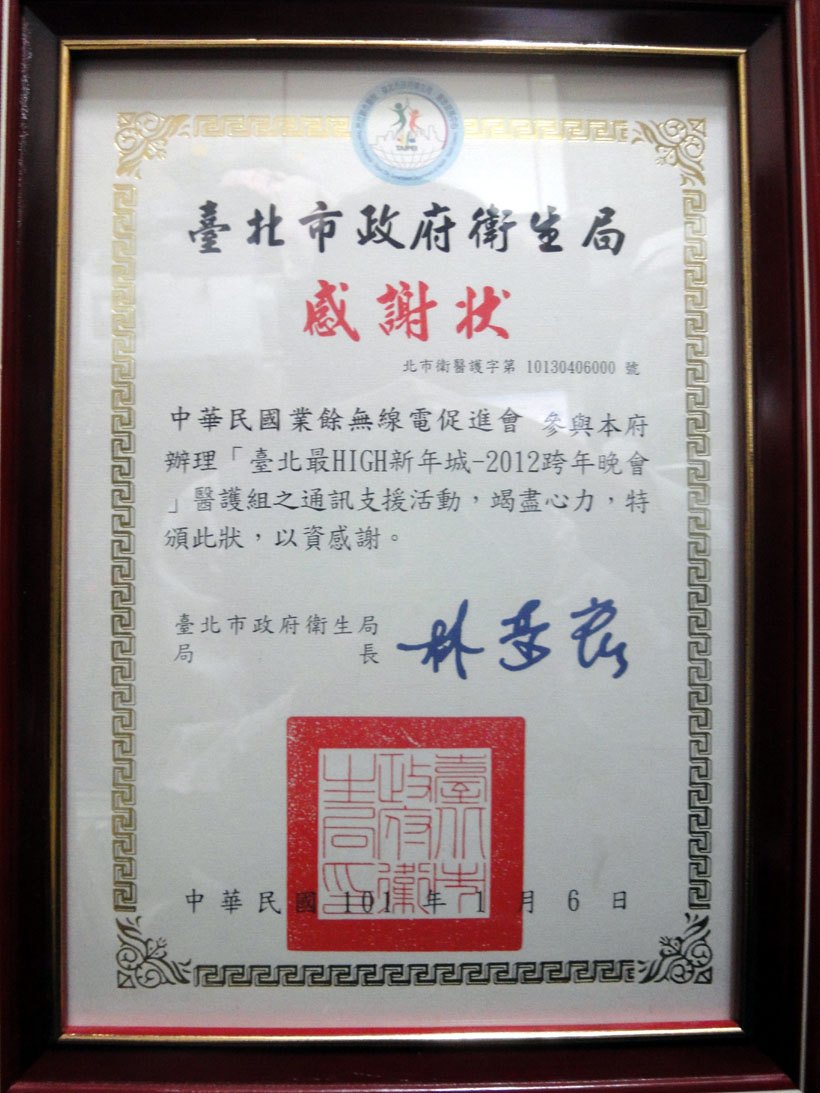 TAIPEI
臺北市政府衛生局
感謝狀
北市衛醫護字第 10130406000 號
中華民國業餘無線電促進會 參與本府
辦理「臺北最HIGH新年城-2012跨年晚會
」醫護組之通訊支援活動，竭盡心力，特
頒此狀，以資感謝。
臺北市政府衛生局
局長
臺北市政府衛生局印
中華民國 101 年 1 月 6 日